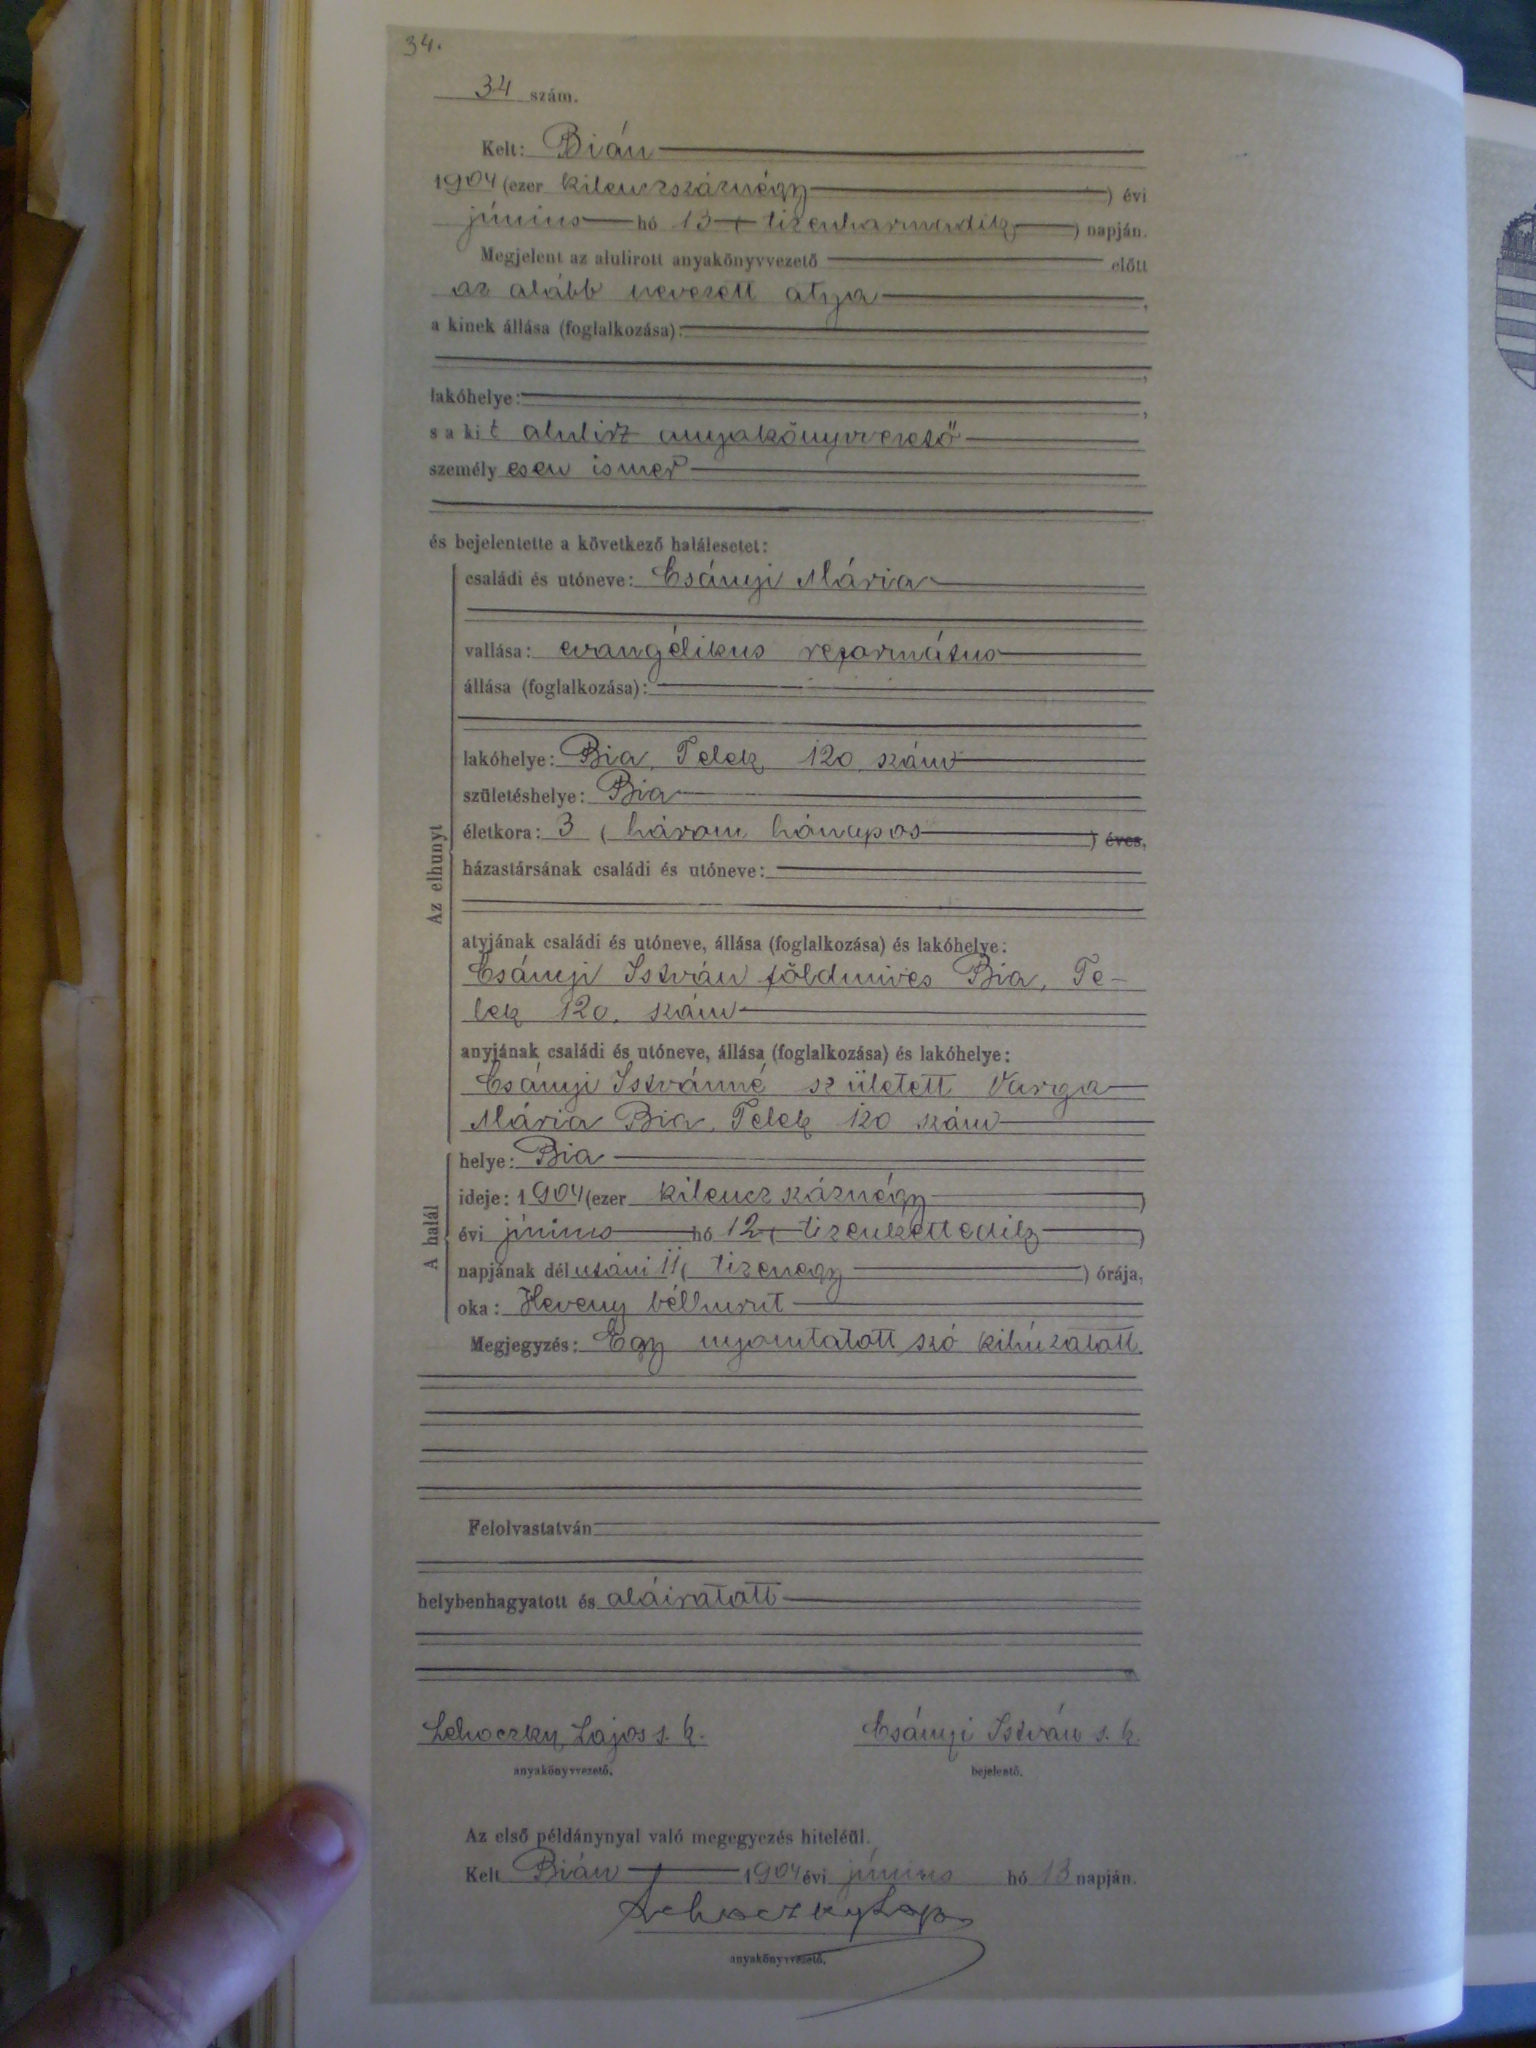 34.
34 szám.
Kelt: Bián
1904 (ezer kilenczszáznégy ) évi
június hó 13 ( tizenharmadik ) napján.
Megjelent az alulirott anyakönyvvezető előtt
az alább nevezett atyja ,
a kinek állása (foglalkozása):
,
lakóhelye: ,
s a kit alulirt anyakönyvvezető
személyesen ismer
és bejelentette a következő halálesetet:
Az elhunyt
családi és utóneve: Csányi Mária
vallása: evangélikus református
állása (foglalkozása):
lakóhelye: Bia, Telek 120 szám
születéshelye: Bia
életkora: 3 ( három hónapos ) éves,
házastársának családi és utóneve:
atyjának családi és utóneve, állása (foglalkozása) és lakóhelye:
Csányi István földmives Bia, Te-
lek 120. szám
anyjának családi és utóneve, állása (foglalkozása) és lakóhelye:
Csányi Istvánné született Varga
Mária Bia, Telek 120 szám
A halál
helye: Bia
ideje: 1904 (ezer kilenczszáznégy )
évi június hó 12 ( tizenkettedik )
napjának délutáni 11 ( tizenegy ) órája,
oka: Heveny bélhurut
Megjegyzés: Egy nyomtatott szó kihúzatott.
Felolvastatván
helybenhagyatott és aláiratott
Lehoczky Lajos s. k. Csányi István s. k.
anyakönyvvezető. bejelentő.
Az első példánynyal való megegyezés hiteléül.
Kelt Bián 1904 évi június hó 13 napján.
Lehoczky Lajos
anyakönyvvezető.